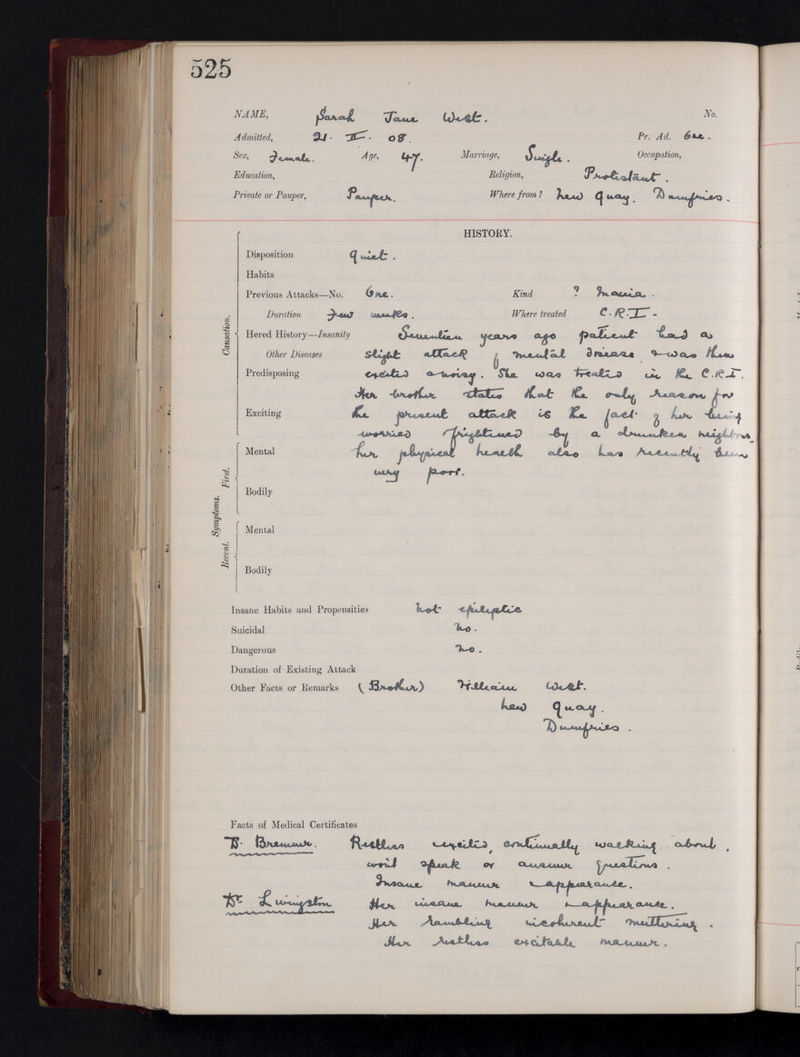 525
NAME, Sarah Jane West. No.
Admitted, 21. II. 08. Pr. Ad. One.
Sex, Female. Age, 47. Marriage, Single. Occupation,
Education, Religion, Protestant.
Private or Pauper, Pauper. Where from? New Quay. Dumfries.
HISTORY.
Disposition quiet.
Habits
Previous Attacks—No. One. Kind ? Mania.
Duration Few weeks. Where treated C.R.I.
Hered History—Insanity Seventeen years ago patient had a
Other Diseases slight attack of mental disease & was then
Predisposing excited & noisy. She was treated in the C.R.I.
Her brother states that the only reason for
Exciting the present attack is the fact of her being
worried & frightened by a drunken neighbour,
Mental her physical health also has recently been
very poor.
Bodily
Mental
Bodily
Causation.
Symptoms.
First.
Recent.
Insane Habits and Propensities not epileptic
Suicidal No.
Dangerous No.
Duration of Existing Attack
Other Facts or Remarks (Brother) William West.
New Quay.
Dumfries.
Facts of Medical Certificates
Dr. Bremner. Restless & excited, continually walking about,
won't speak or answer questions.
Insane manner & appearance.
Dr Livingston Her insane manner & appearance.
Her rambling incoherent muttering.
Her restless excitable manner.